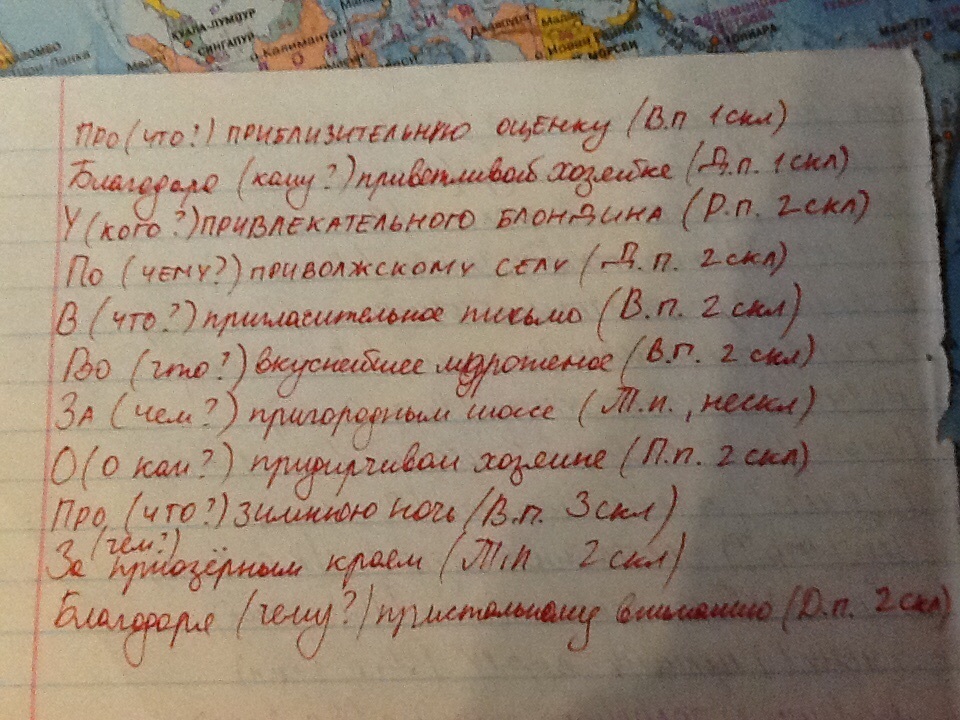 КУАЛА-ЛУМПУР
СИНГАПУР
Калимантан
МОРСБИ
Про (что?) приблизительную оценку (В.п 1 скл)
Благодаря (кому?) приветливой хозяйке (Д.п. 1 скл)
У (кого?) привлекательного блондина (Р.п. 2 скл)
По (чему?) приволжскому селу (Д.п. 2 скл)
В (что?) пригласительное письмо (В.п. 2 скл)
Во (что?) вкуснейшее мороженое (В.п. 2 скл)
За (чем?) пригородным шоссе (Т.п., нескл)
О (о ком?) придирчивом хозяине (П.п. 2 скл)
Про (что?) зимнюю ночь (В.п. 3 скл)
За (чем?) приозёрным краем (Т.п 2 скл)
Благодаря (чему?) пристальному вниманию (Д.п. 2 скл)